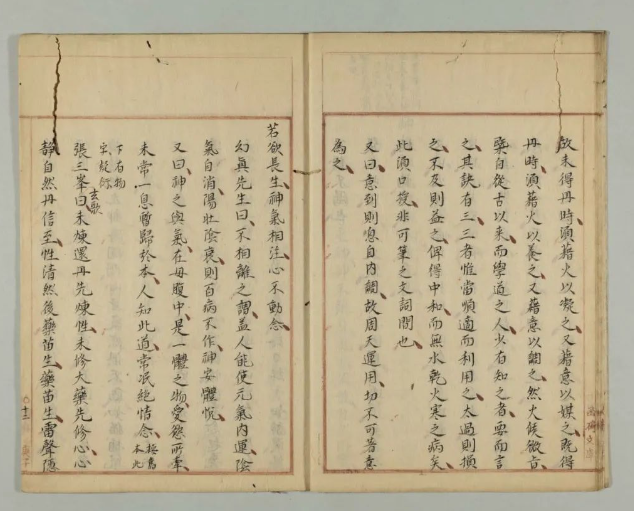 故未得丹時須藉火以凝之又藉意以媒之既得
丹時須藉火以養之又藉意以調之然火候微旨
槩自從古以來而學道之人少有知之者要而言
之其訣有三三者惟當順適而利用之太過則損
之不及則益之俾得中和而無水乾火寒之病矣
此須口授非可筆之文詞間也
又曰意到則息自內調故周天運用切不可着意
為之
若欲長生神氣相注心不動念
幻真先生曰不相離之謂蓋人能使元氣內運陰
氣自消陽壯陰衰則百病不作神安體悅
又曰神之與氣在母腹中是一體之物愛慾所牽
未常一息暫歸於本人知此道常泯絕情念
下有物
字疑
張三峯曰未煉還丹先煉性未修大藥先修心心
靜自然丹信至性清然後藥苗生藥苗生雷聲隱
十三